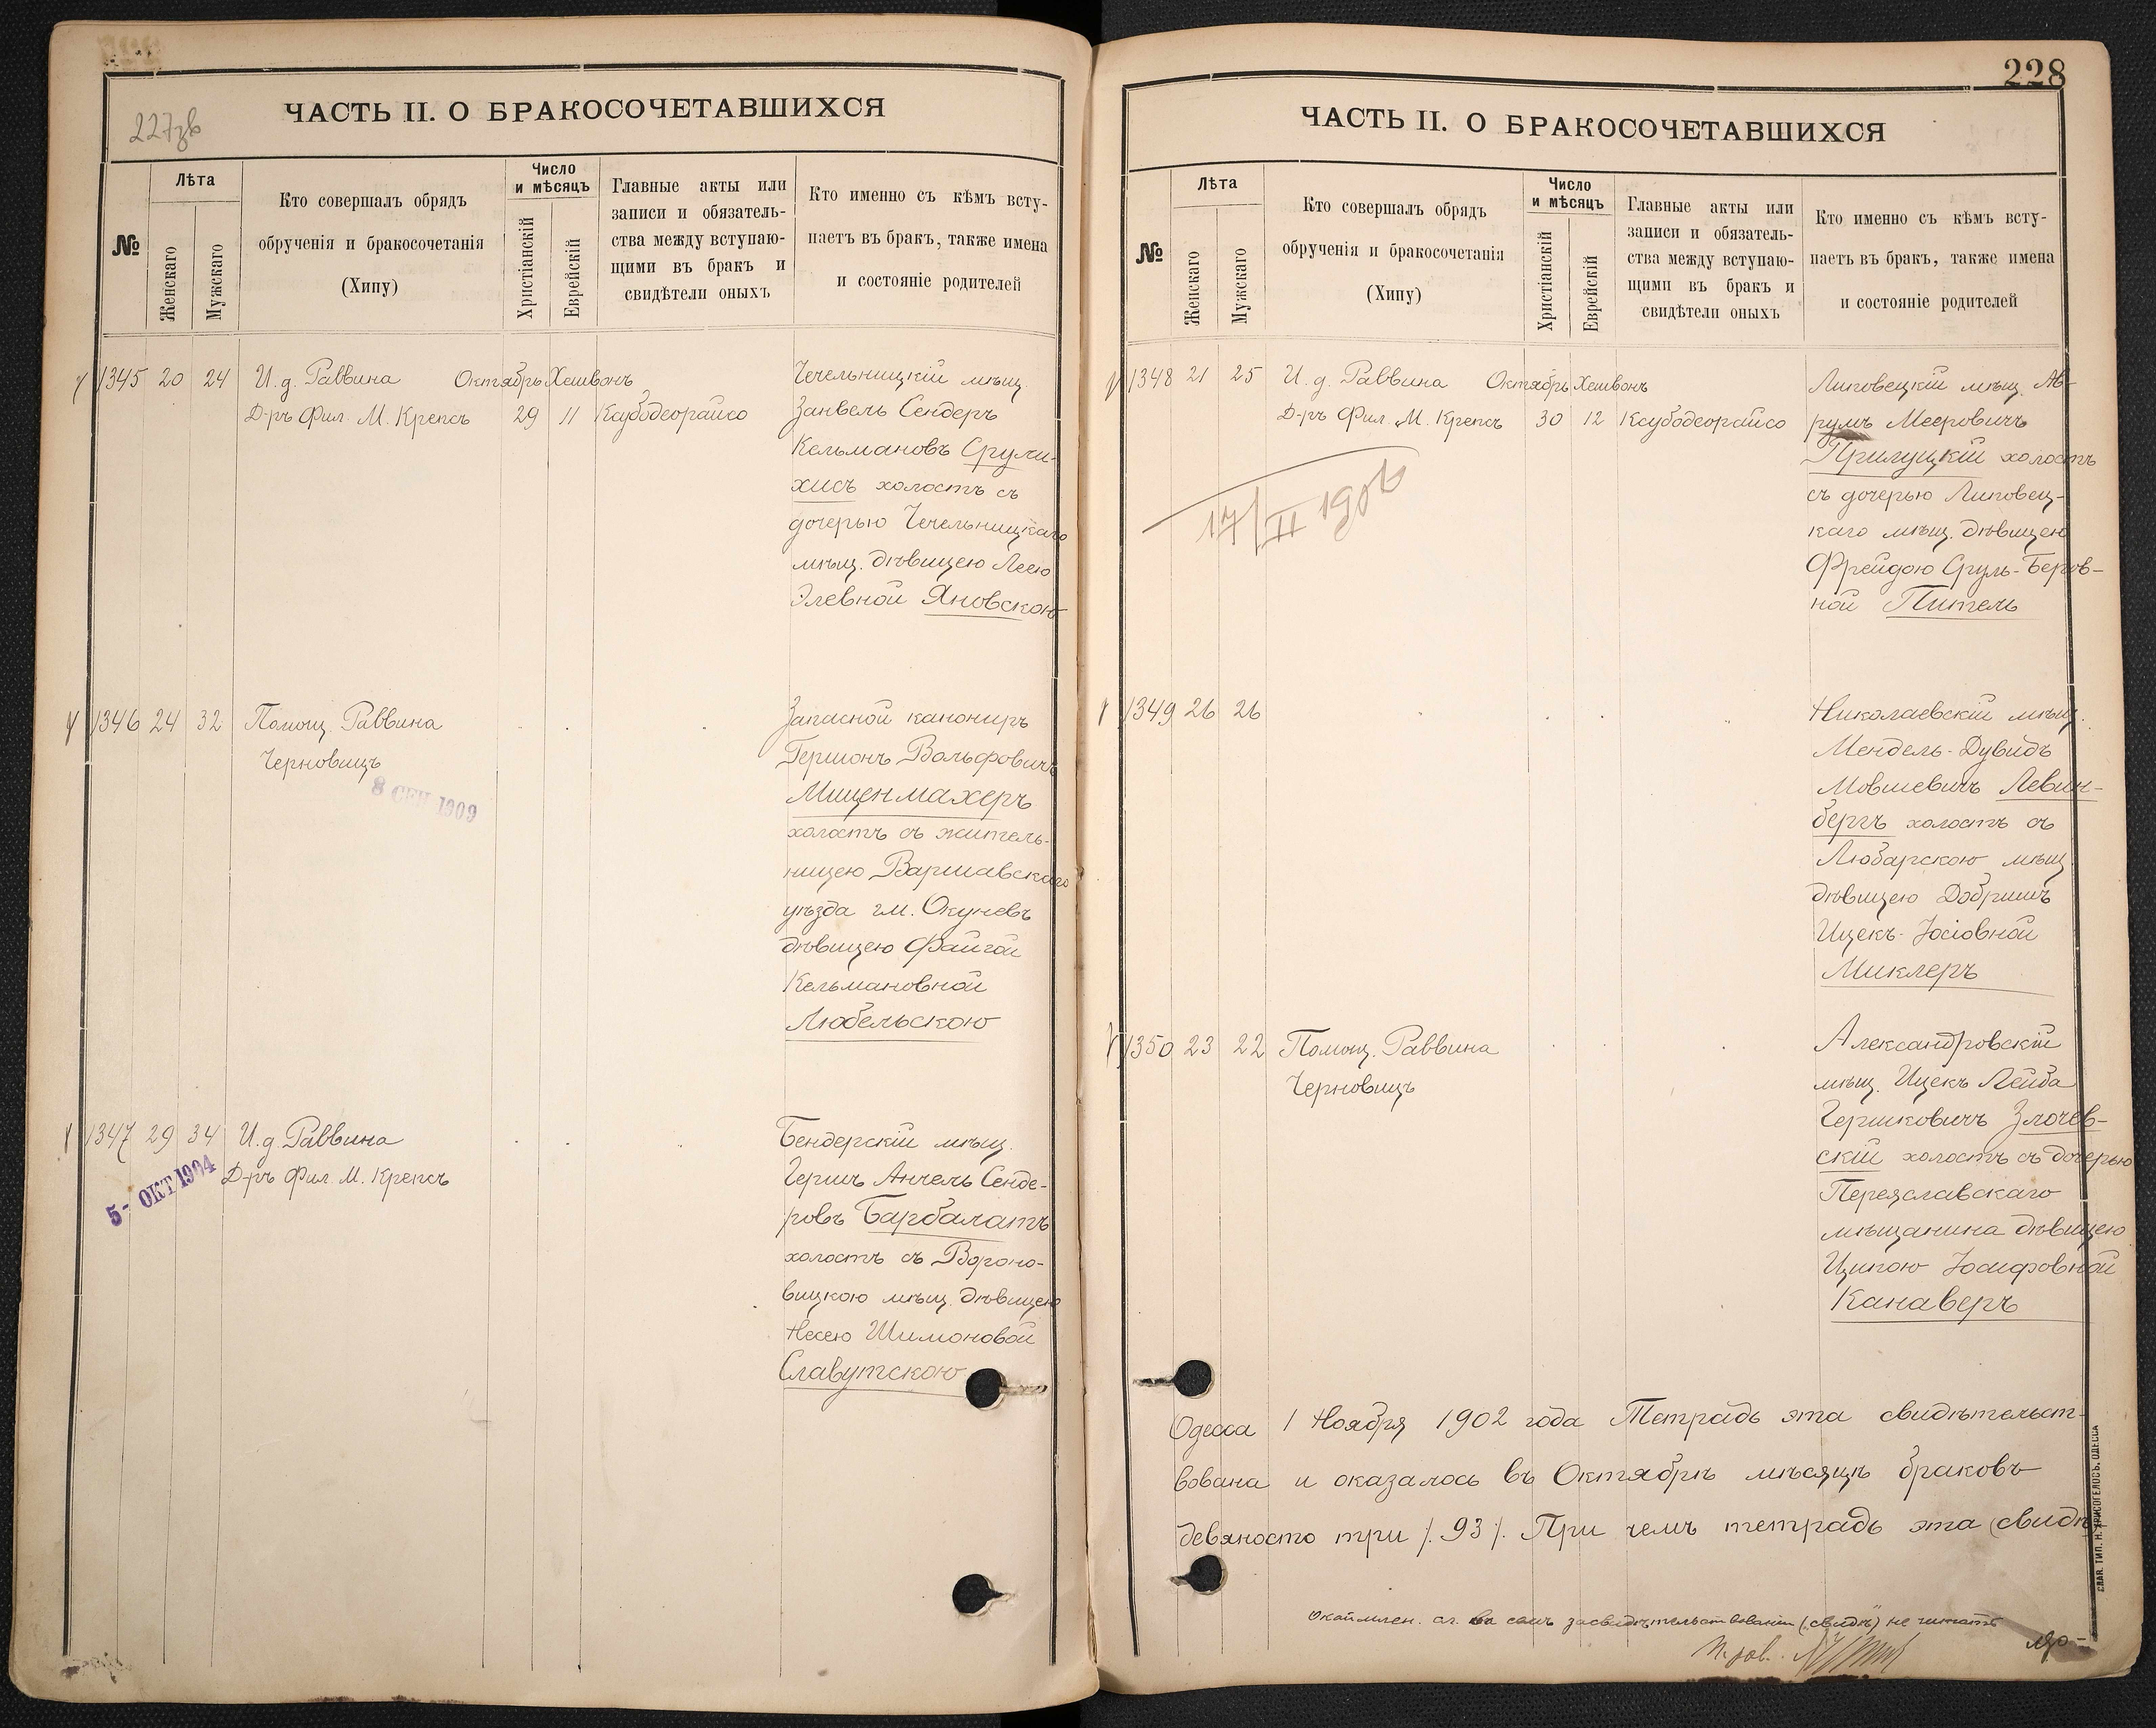 227зв
ЧАСТЬ II. О БРАКОСОЧЕТАВШИХСЯ
№
Лѣта
Женскаго
Мужскаго
Кто совершалъ обрядъ
обрученія и бракосочетанія
(Хипу)
Число
и мѣсяцъ
Христіанскій
Еврейскій
Главные акты или
записи и обязатель-
ства между вступаю-
щими въ бракъ и
свидѣтели оныхъ
Кто именно съ кѣмъ всту-
паетъ въ бракъ, также имена
и состояніе родителей
1345 20 24 И. д. Раввина Октябрь Хешвонъ
Д-ръ Фил. М. Крепсъ 29 11 Каубодеорайсо
Чечельницкій мѣщ.
Занвель Сендеръ
Кельмановъ Срули-
хисъ холостъ съ
дочерью Чечельницкаго
мѣщ. дѣвицею Леею
Элевной Яновскою
1346 24 32 Помощ. Раввина
Черновицъ
8 СЕН 1909
Запасной канониръ
Гершонъ Вольфовичъ
Миценмахеръ
холостъ съ житель-
ницею Варшавскаго
уѣзда гм. Окуневъ
дѣвицею Файгой
Кельмановной
Любельскою
1347 29 34 И. д. Раввина
Д-ръ Фил. М. Крепсъ
5- ОКТ 1904
Бендерскій мѣщ.
Гершъ Анчель Сенде-
ровъ Барбалатъ
холостъ съ Вороно-
вицкою мѣщ. дѣвицею
Несею Шимоновой
Славутскою
228
ЧАСТЬ II. О БРАКОСОЧЕТАВШИХСЯ
№
Лѣта
Женскаго
Мужскаго
Кто совершалъ обрядъ
обрученія и бракосочетанія
(Хипу)
Число
и мѣсяцъ
Христіанскій
Еврейскій
Главные акты или
записи и обязатель-
ства между вступаю-
щими въ бракъ и
свидѣтели оныхъ
Кто именно съ кѣмъ всту-
паетъ въ бракъ, также имена
и состояніе родителей
1348 21 25 И. д. Раввина Октябрь Хешвонъ
Д-ръ Фил. М. Крепсъ 30 12 Каубодеорайсо
17/II 1906
Липовецкій мѣщ. Ав-
румъ Мееровичъ
Прилуцкій холостъ
съ дочерью Липовец-
каго мѣщ. дѣвицею
Фрейдою Сруль-Беров-
ной Питель
1349 26 26
Николаевскій мѣщ.
Мендель-Дувидъ
Мовшевичъ Левин-
бергъ холостъ съ
Любарскою мѣщ.
дѣвицею Добришъ
Ицекъ-Іосіовной
Миклеръ
1350 23 22 Помощ. Раввина
Черновицъ
Александровскій
мѣщ. Ицекъ Лейба
Гершковичъ Злочев-
скій холостъ съ дочерью
Переяславскаго
мѣщанина дѣвицею
Ципою Іосифовной
Канаверъ
Одесса 1 Ноября 1902 года Тетрадь эта свидѣтельст-
вована и оказалось въ Октябрѣ мѣсяцѣ браковъ
девяносто три /. 93 /. При чемъ тетрадь эта (свидѣ
не читать
ЕЛАВ. ТИП. Н. ХРИСОГЕЛОСЪ, ОДЕССА